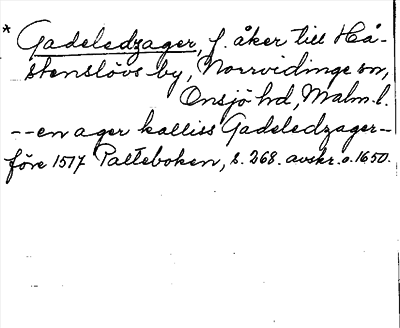 * Gadeledzager, f. åker till Hå-
stenslövs by, Norrvidinge sn,
Onsjö hd, Malm. l.
-- en ager kalliss Gadeledzager --
före 1517 Palteboken, s. 268. avskr. o. 1650.